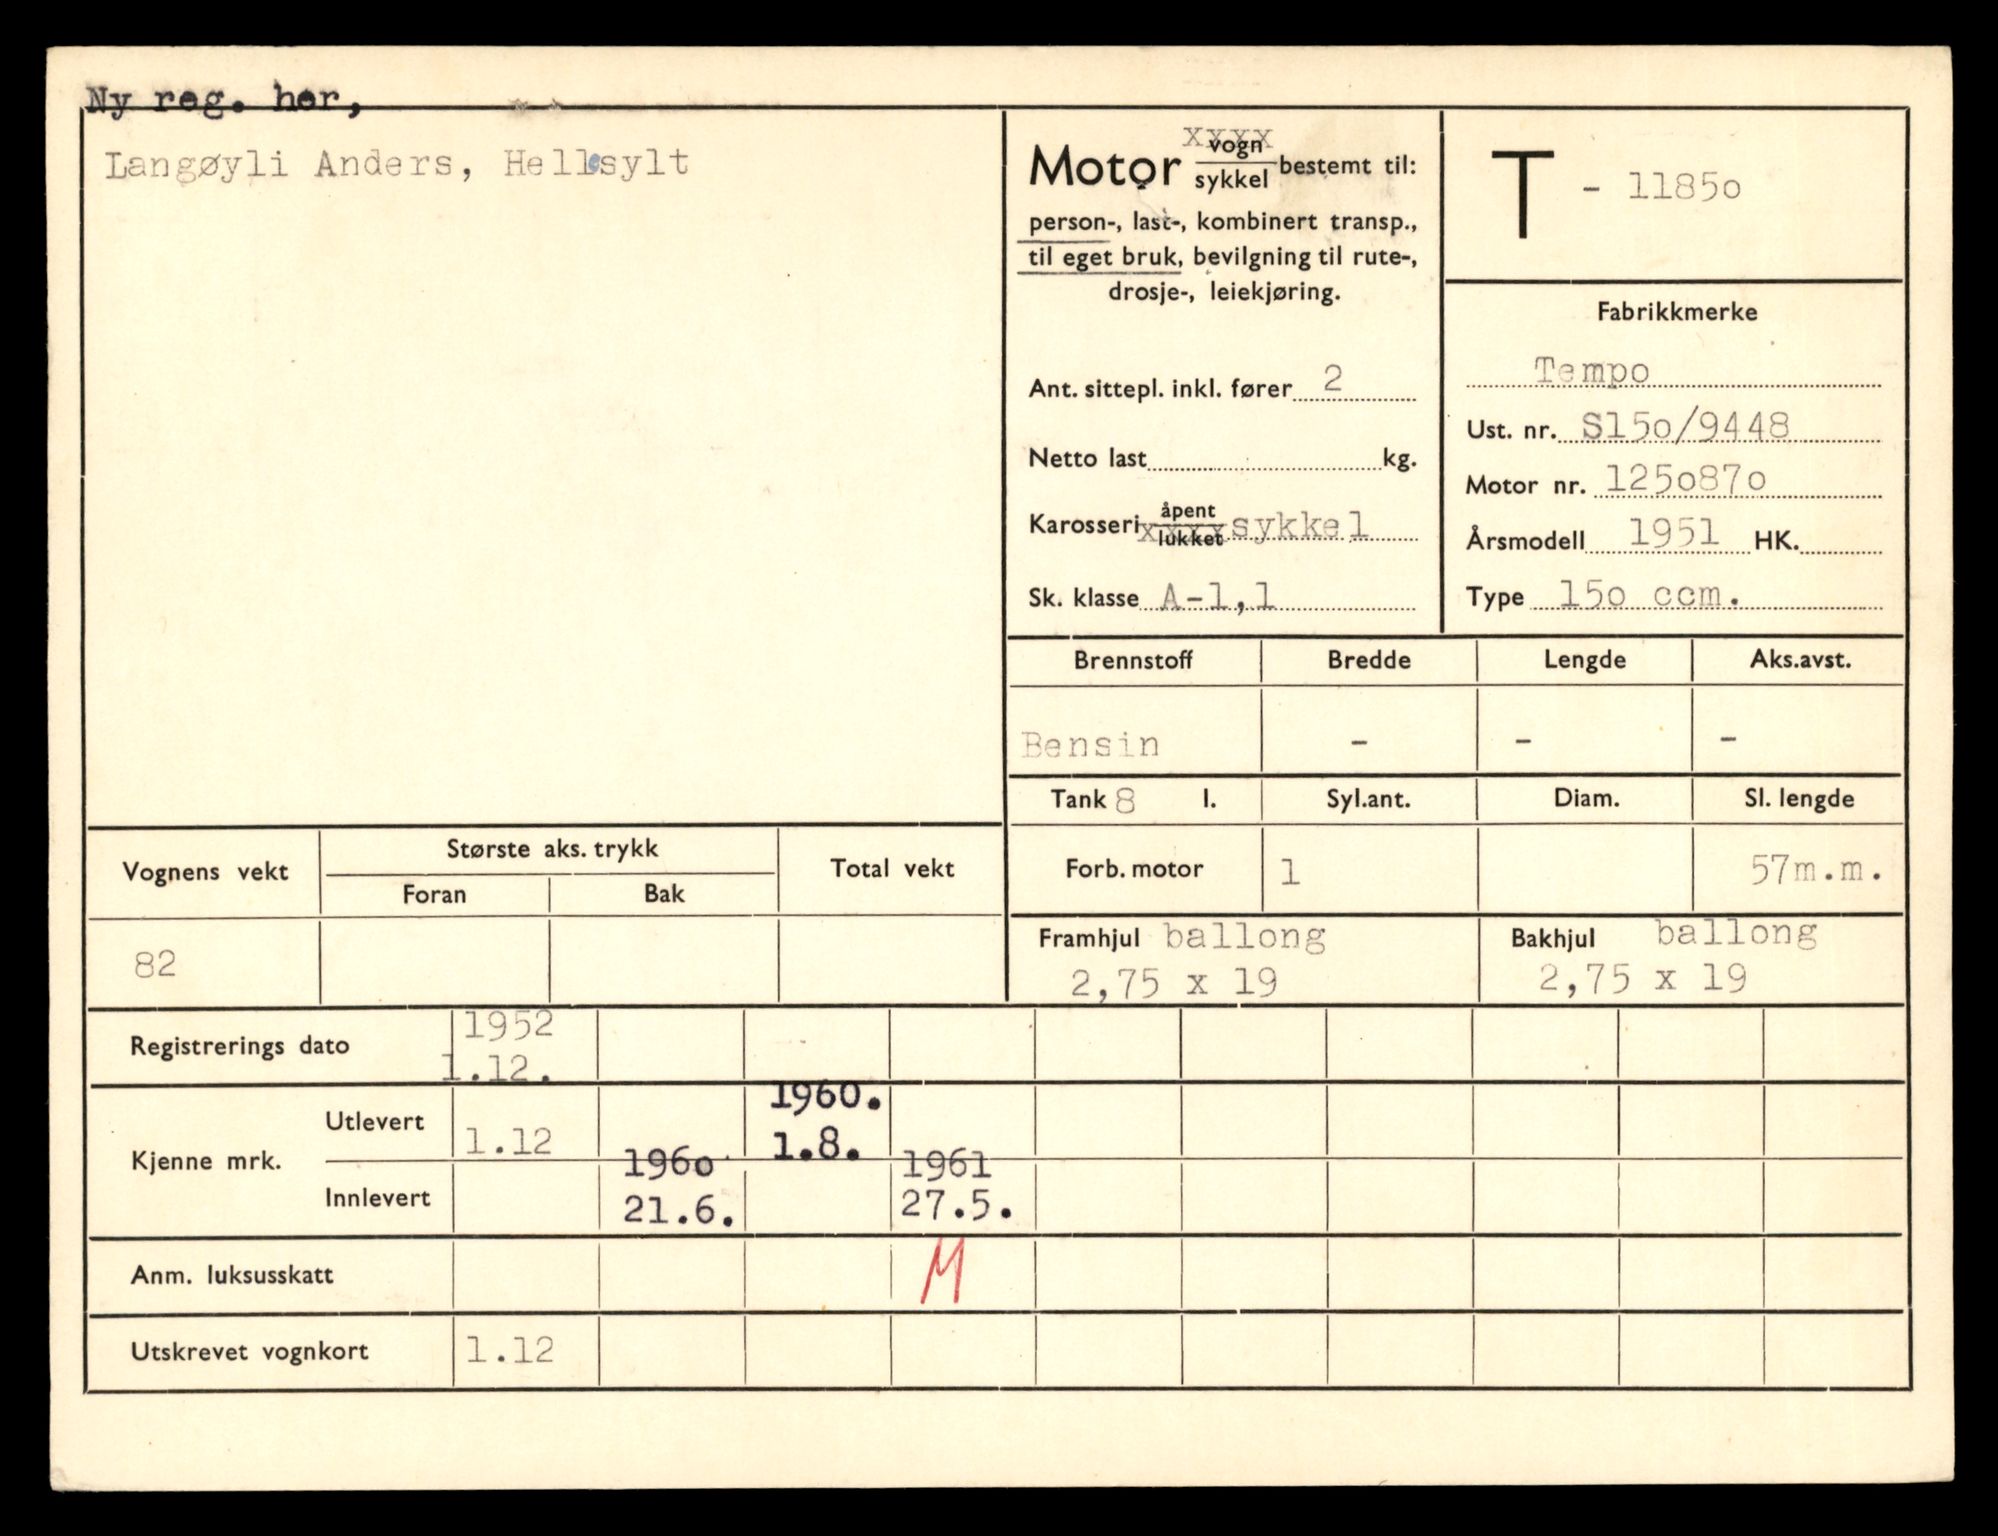 Ny reg. her,
Langøyli Anders, Hellesylt
Motor vogn xxxx
sykkel bestemt til:
person-, last-, kombinert transp.,
til eget bruk, bevilgning til rute-,
drosje-, leiekjøring.
Ant. sittepl. inkl. fører 2
Netto last kg.
Karosseri åpent
lukket xxxx sykkel
Sk. klasse A-1,1
T - 1185o
Fabrikkmerke
Tempo
Ust. nr. S15o/9448
Motor nr. 125o87o
Årsmodell 1951 HK.
Type 15o ccm.
Brennstoff Bredde Lengde Aks.avst.
Bensin - - -
Tank 8 l. Syl.ant. Diam. Sl. lengde
Forb. motor 1 57m.m.
Framhjul ballong Bakhjul ballong
2,75 x 19 2,75 x 19
Vognens vekt Største aks. trykk Total vekt
Foran Bak
82
Registrerings dato 1952
1.12.
Kjenne mrk. Utlevert 1.12 1960.
1.8.
Innlevert 196o 1961
21.6. 27.5.
Anm. luksusskatt M
Utskrevet vognkort 1.12